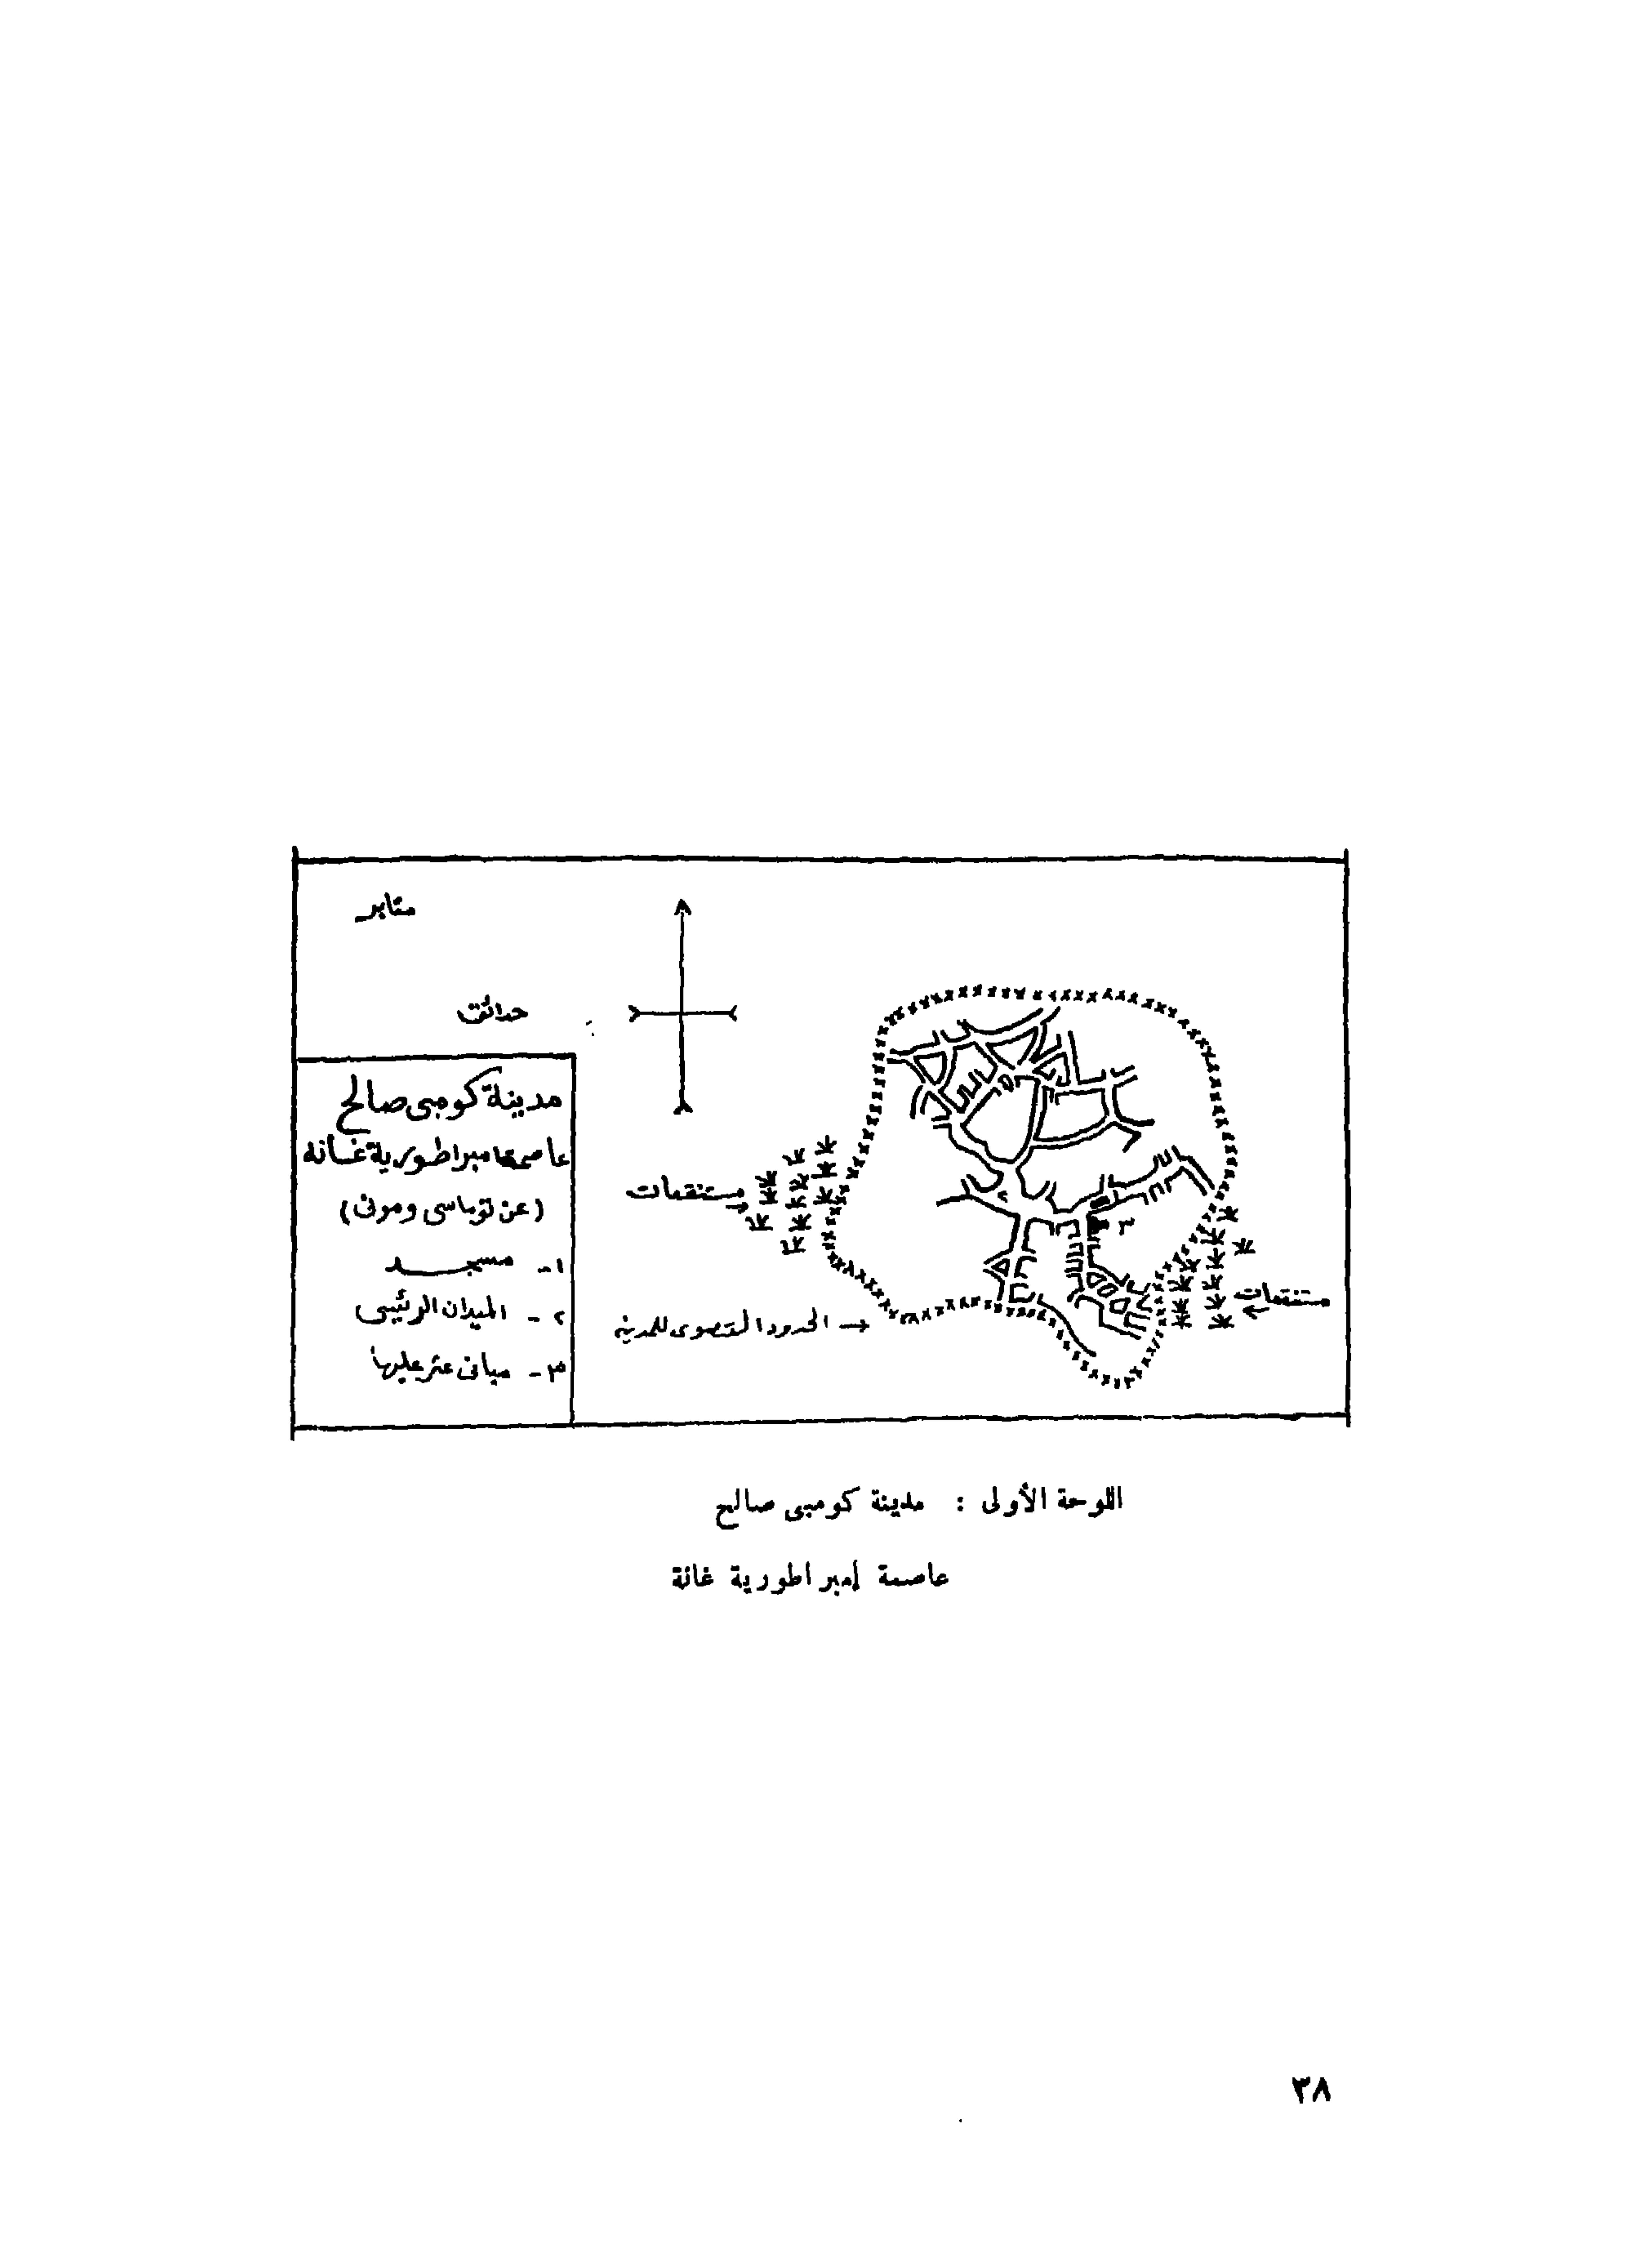 مقابر
حدائق
مدينة كومبى صالح
عاصمة امبراطورية غانة
(عن توماسى ومونى)
١- مسجد
٢- الميدان الرئيسى
٣- مبانى عثر عليها
مستنقعات
٣
مستنقعات
الحدود القصوى للمدينه
اللوحة الأولى : مدينة كومبى صالح
عاصمة إمبراطورية غانة
٣٨